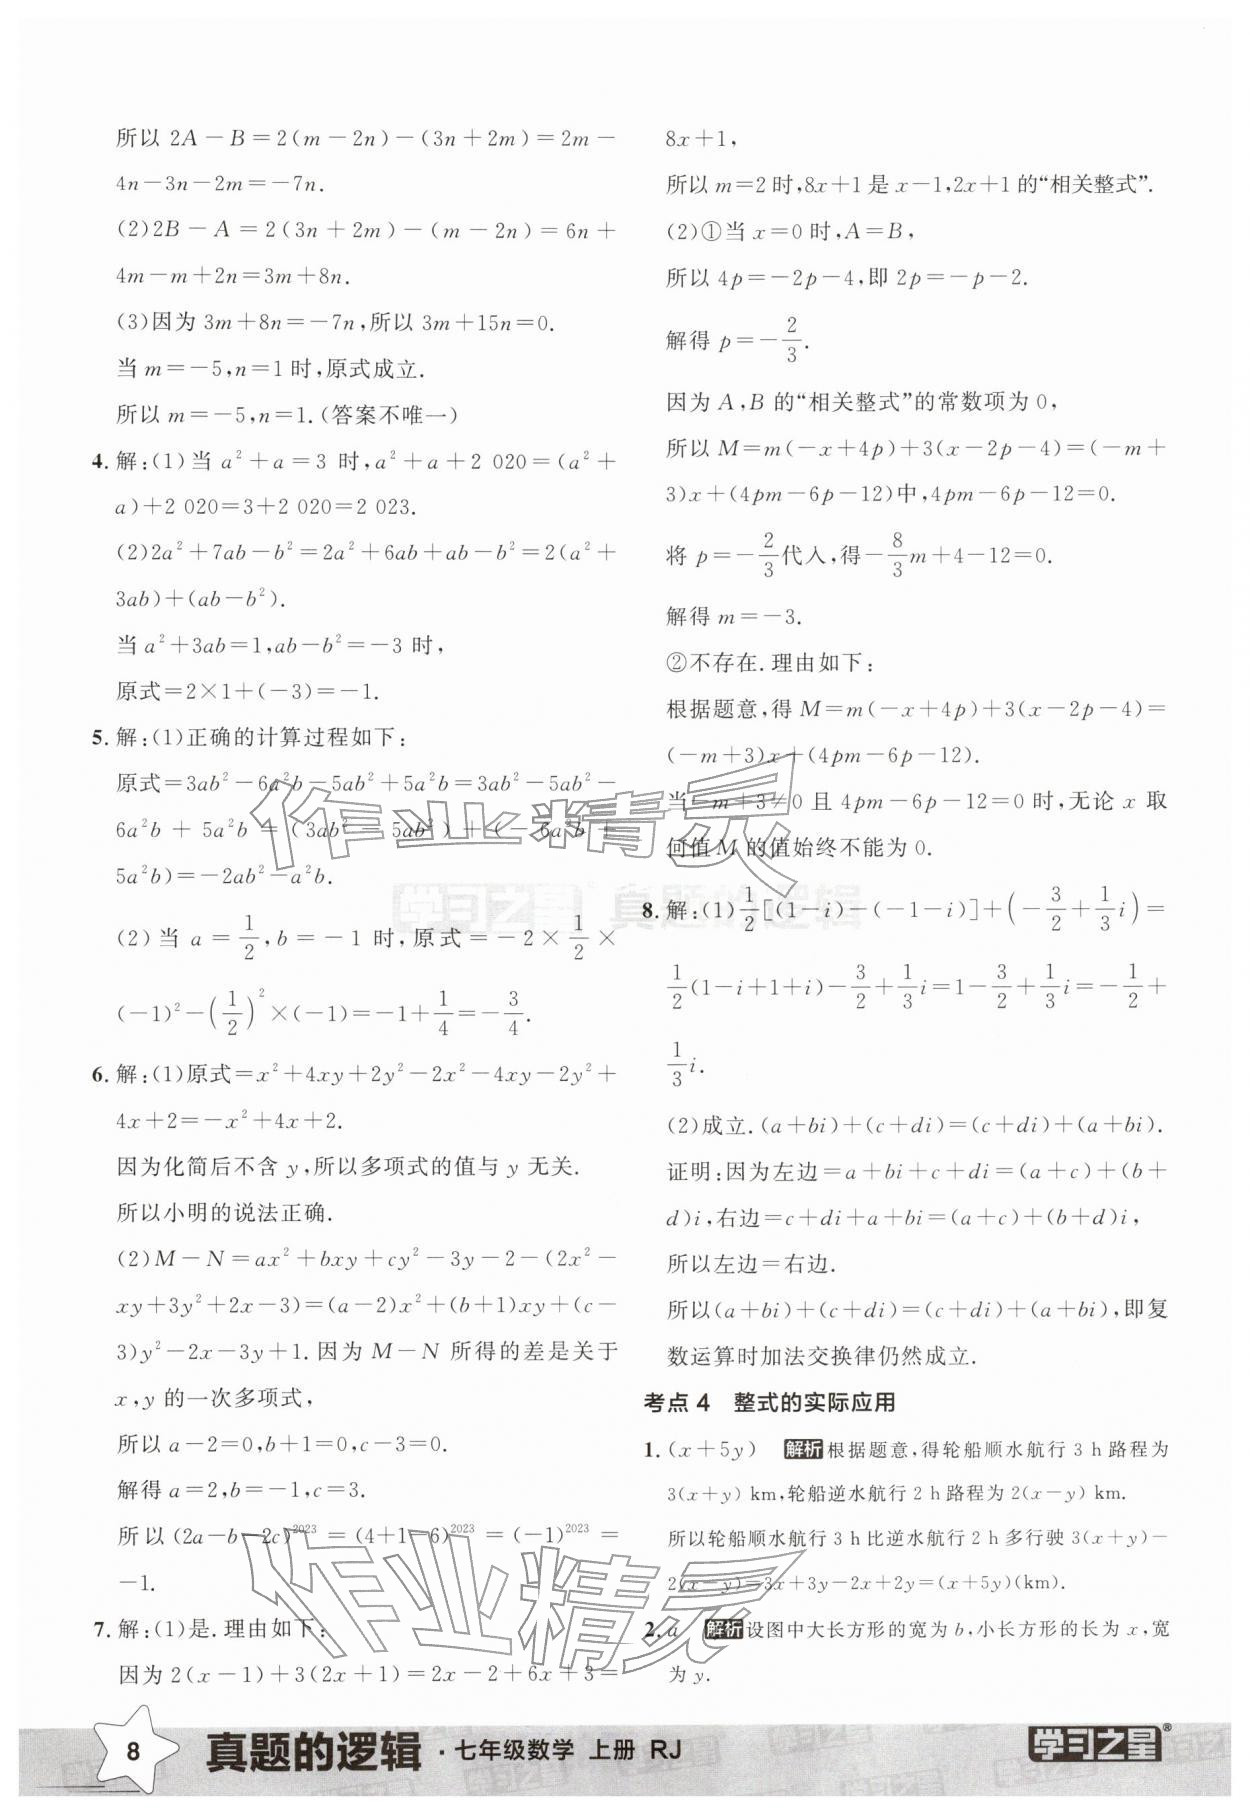 所以 2A－B＝2(m－2n)－(3n＋2m)＝2m－
4n－3n－2m＝－7n.
(2)2B－A＝2(3n＋2m)－(m－2n)＝6n＋
4m－m＋2n＝3m＋8n.
(3)因为 3m＋8n＝－7n,所以 3m＋15n＝0.
当 m＝－5,n＝1 时,原式成立.
所以 m＝－5,n＝1.(答案不唯一)
4. 解:(1)当 a²＋a＝3 时,a²＋a＋2 020＝(a²＋
a)＋2 020＝3＋2 020＝2 023.
(2)2a²＋7ab－b²＝2a²＋6ab＋ab－b²＝2(a²＋
3ab)＋(ab－b²).
当 a²＋3ab＝1,ab－b²＝－3 时,
原式＝2×1＋(－3)＝－1.
5. 解:(1)正确的计算过程如下:
原式＝3ab²－6a²b－5ab²＋5a²b＝3ab²－5ab²－
6a²b＋5a²b＝(3ab²－5ab²)＋(－6a²b＋
5a²b)＝－2ab²－a²b.
(2)当 a＝1/2,b＝－1 时,原式＝－2×1/2×
(－1)²－(1/2)²×(－1)＝－1＋1/4＝－3/4.
6. 解:(1)原式＝x²＋4xy＋2y²－2x²－4xy－2y²＋
4x＋2＝－x²＋4x＋2.
因为化简后不含 y,所以多项式的值与 y 无关.
所以小明的说法正确.
(2)M－N＝ax²＋bxy＋cy²－3y－2－(2x²－
xy＋3y²＋2x－3)＝(a－2)x²＋(b＋1)xy＋(c－
3)y²－2x－3y＋1.因为 M－N 所得的差是关于
x,y 的一次多项式,
所以 a－2＝0,b＋1＝0,c－3＝0.
解得 a＝2,b＝－1,c＝3.
所以 (2a－b－2c)²⁰²³＝(4＋1－6)²⁰²³＝(－1)²⁰²³＝
－1.
7. 解:(1)是.理由如下:
因为 2(x－1)＋3(2x＋1)＝2x－2＋6x＋3＝
8x＋1,
所以 m＝2 时,8x＋1 是 x－1,2x＋1 的“相关整式”.
(2)①当 x＝0 时,A＝B,
所以 4p＝－2p－4,即 2p＝－p－2.
解得 p＝－2/3.
因为 A,B 的“相关整式”的常数项为 0,
所以 M＝m(－x＋4p)＋3(x－2p－4)＝(－m＋
3)x＋(4pm－6p－12)中,4pm－6p－12＝0.
将 p＝－2/3代入,得－8/3m＋4－12＝0.
解得 m＝－3.
②不存在.理由如下:
根据题意,得 M＝m(－x＋4p)＋3(x－2p－4)＝
(－m＋3)x＋(4pm－6p－12).
当－m＋3≠0 且 4pm－6p－12＝0 时,无论 x 取
何值 M 的值始终不能为 0.
8. 解:(1)1/2[(1－i)－(－1－i)]＋(－3/2＋1/3i)＝
1/2(1－i＋1＋i)－3/2＋1/3i＝1－3/2＋1/3i＝－1/2＋
1/3i.
(2)成立.(a＋bi)＋(c＋di)＝(c＋di)＋(a＋bi).
证明:因为左边＝a＋bi＋c＋di＝(a＋c)＋(b＋
d)i,右边＝c＋di＋a＋bi＝(a＋c)＋(b＋d)i,
所以左边＝右边.
所以(a＋bi)＋(c＋di)＝(c＋di)＋(a＋bi),即复
数运算时加法交换律仍然成立.
考点 4 整式的实际应用
1. (x＋5y) 解析 根据题意,得轮船顺水航行 3 h 路程为
3(x＋y) km,轮船逆水航行 2 h 路程为 2(x－y) km.
所以轮船顺水航行 3 h 比逆水航行 2 h 多行驶 3(x＋y)－
2(x－y)＝3x＋3y－2x＋2y＝(x＋5y)(km).
2. a 解析 设图中大长方形的宽为 b,小长方形的长为 x,宽
为 y.
作业精灵
学习之星 真题的逻辑
作业精灵
8 真题的逻辑·七年级数学 上册 RJ 学习之星®